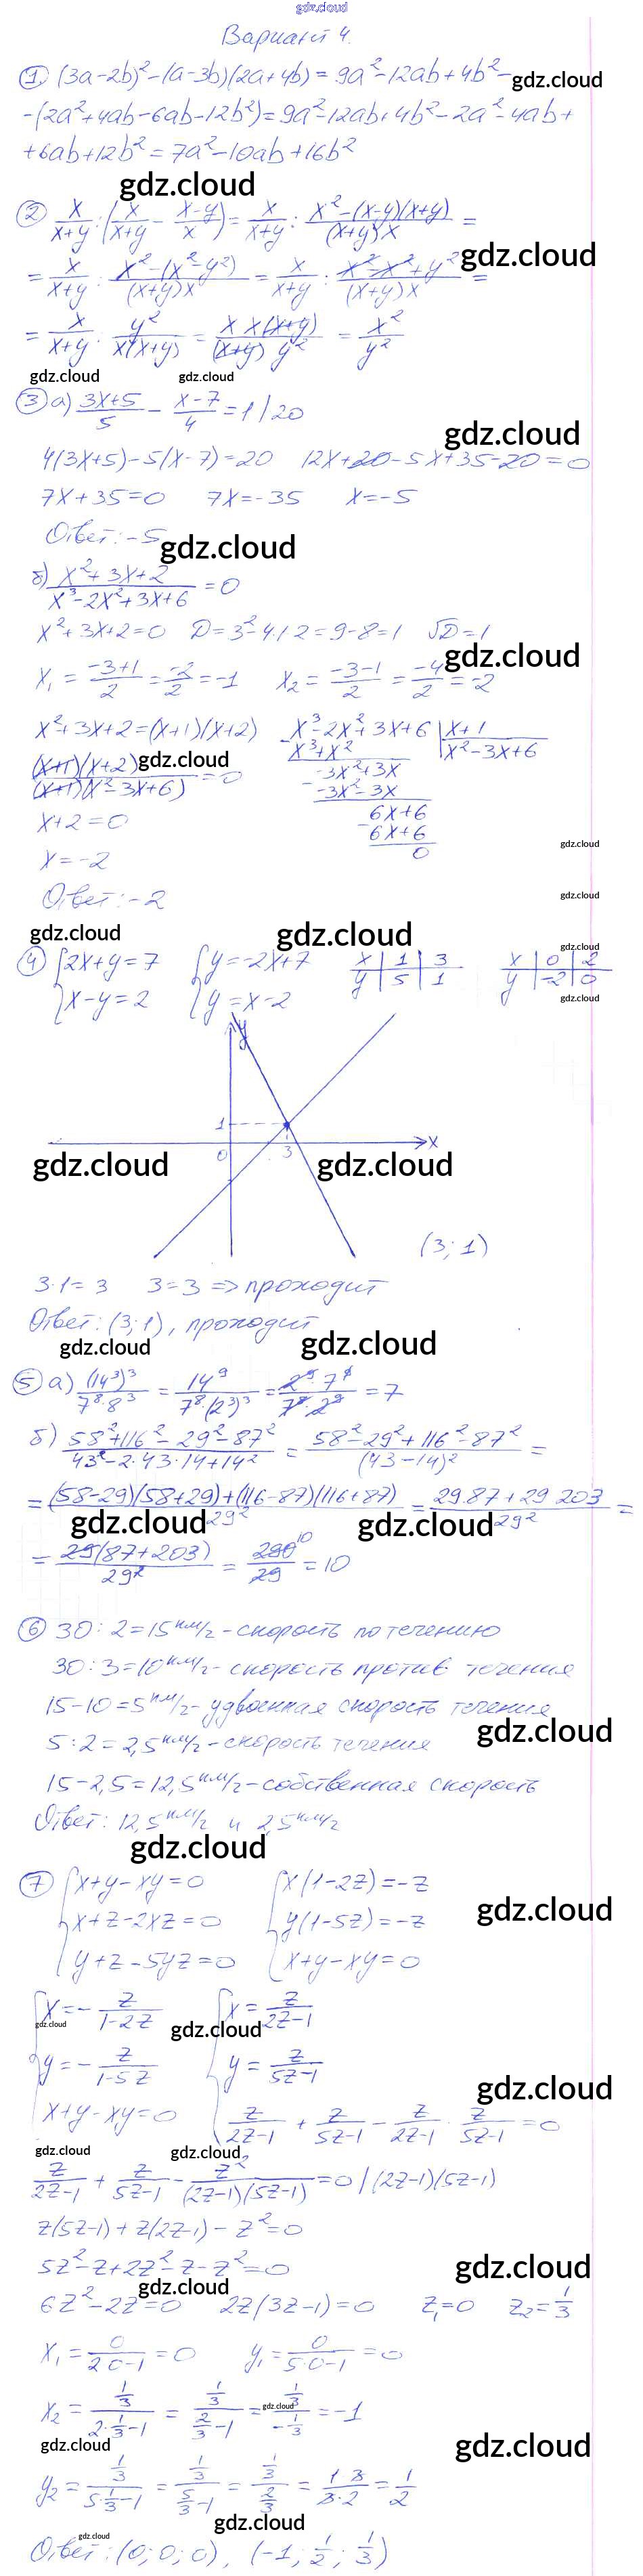 gdz.cloud
Вариант 4.
① (3a-2b)²-(a-3b)(2a+4b)=9a²-12ab+4b²-
gdz.cloud
-(2a²+4ab-6ab-12b²)=9a²-12ab+4b²-2a²-4ab+
+6ab+12b²=7a²-10ab+16b²
gdz.cloud
② x/(x+y) : (x/(x+y) - (x-y)/x) = x/(x+y) : (x²-(x-y)(x+y))/((x+y)x) =
gdz.cloud
= x/(x+y) : (x²-(x²-y²))/((x+y)x) = x/(x+y) : (x²-x²+y²)/((x+y)x) =
= x/(x+y) : y²/(x(x+y)) = (x x(x+y))/((x+y) y²) = x²/y²
gdz.cloud gdz.cloud
③ а) (3x+5)/5 - (x-7)/4 = 1 /20
gdz.cloud
4(3x+5)-5(x-7)=20 12x+20-5x+35-20=0
7x+35=0 7x=-35 x=-5
Ответ: -5
gdz.cloud
б) (x²+3x+2)/(x³-2x²+3x+6) = 0
x²+3x+2=0 D=3²-4·1·2=9-8=1 √D=1
gdz.cloud
x₁ = (-3+1)/2 = -2/2 = -1 x₂ = (-3-1)/2 = -4/2 = -2
x²+3x+2=(x+1)(x+2) x³-2x²+3x+6 | x+1
x³+x² x²-3x+6
((x+1)(x+2))/((x+1)(x²-3x+6)) = 0 gdz.cloud
-3x²+3x
-3x²-3x
x+2=0 6x+6
6x+6
0
gdz.cloud
x=-2
Ответ: -2 gdz.cloud
gdz.cloud gdz.cloud gdz.cloud
④ {2x+y=7 {y=-2x+7 x | 1 | 3 x | 0 | 2
{x-y=2 {y=x-2 y | 5 | 1 y | -2 | 0
gdz.cloud
y
1
0 3 x
gdz.cloud gdz.cloud
(3; 1)
3·1=3 3=3 => проходит
Ответ: (3; 1), проходит
gdz.cloud gdz.cloud
⑤ а) (14³)³/(7⁸·8³) = 14⁹/(7⁸·(2³)³) = (2⁹·7⁹)/(7⁸·2⁹) = 7
б) (58²+116²-29²-87²)/(43²-2·43·14+14²) = (58²-29²+116²-87²)/((43-14)²) =
= ((58-29)(58+29)+(116-87)(116+87))/29² = (29·87+29·203)/29² =
gdz.cloud gdz.cloud
= (29(87+203))/29² = 290/29 = 10
⑥ 30 : 2=15 км/ч - скорость по течению
30 : 3=10 км/ч - скорость против течения
15-10=5 км/ч - удвоенная скорость течения
gdz.cloud
5 : 2=2,5 км/ч - скорость течения
15-2,5=12,5 км/ч - собственная скорость
Ответ: 12,5 км/ч и 2,5 км/ч
gdz.cloud
⑦ {x+y-xy=0 {x(1-2z)=-z
{x+z-2xz=0 {y(1-5z)=-z gdz.cloud
{y+z-5yz=0 {x+y-xy=0
{x=-z/(1-2z) {x=z/(2z-1)
gdz.cloud gdz.cloud
{y=-z/(1-5z) {y=z/(5z-1)
gdz.cloud
{x+y-xy=0 {z/(2z-1) + z/(5z-1) - z/(2z-1) · z/(5z-1) = 0
gdz.cloud gdz.cloud
z/(2z-1) + z/(5z-1) - z²/((2z-1)(5z-1)) = 0 /(2z-1)(5z-1)
z(5z-1)+z(2z-1)-z²=0
5z²-z+2z²-z-z²=0
gdz.cloud gdz.cloud
6z²-2z=0 2z(3z-1)=0 z₁=0 z₂=1/3
x₁ = 0/(2·0-1) = 0 y₁ = 0/(5·0-1) = 0
x₂ = (1/3)/(2·1/3-1) = (1/3)/(2/3-1) = (1/3)/(-1/3) = -1
gdz.cloud
gdz.cloud gdz.cloud
y₂ = (1/3)/(5·1/3-1) = (1/3)/(5/3-1) = (1/3)/(2/3) = (1·3)/(3·2) = 1/2
gdz.cloud
gdz.cloud
Ответ: (0; 0; 0), (-1; 1/2; 1/3)